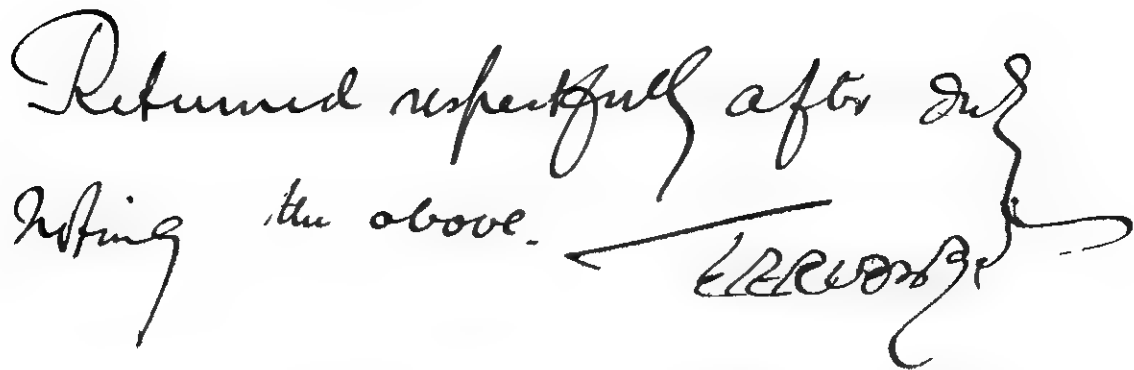 Returned respectfully after duly
noting the above.